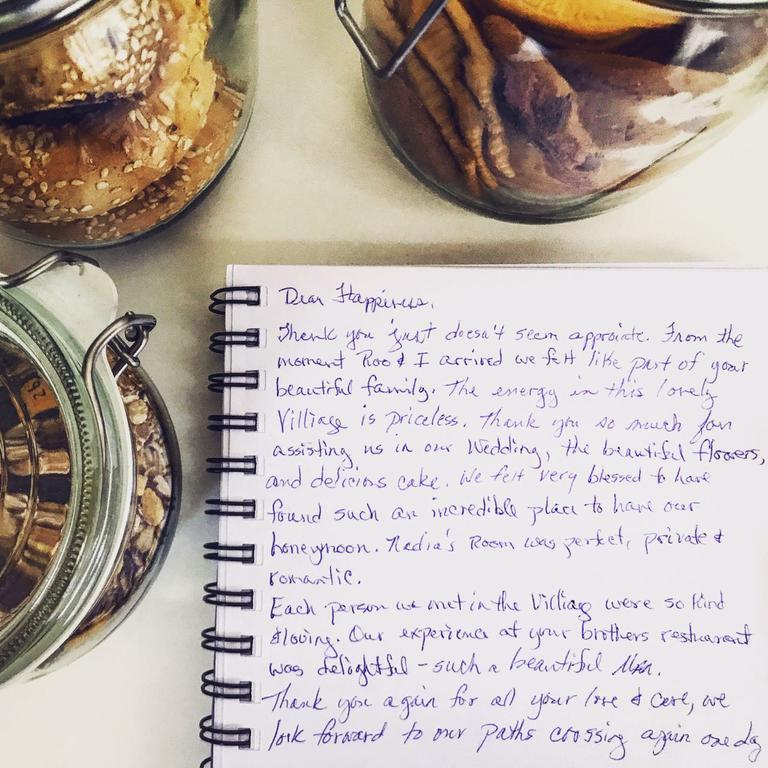 Dear Happiness,
Thank you just doesn't seem approiate. From the
moment Roo & I arrived we felt like part of your
beautiful family. The energy in this lovely
Villiage is priceless. Thank you so much for
assisting us in our Wedding, the beautiful flowers,
and delicious cake. We felt very blessed to have
found such an incredible place to have our
honeymoon. Nadia's Room was perfect, private &
romantic.
Each person we met in the Villiag were so kind
& loving. Our experience at your brothers resturarant
was delightful - such a beautiful
Thank you again for all your love & care, we
look forward to our paths crossing again one day